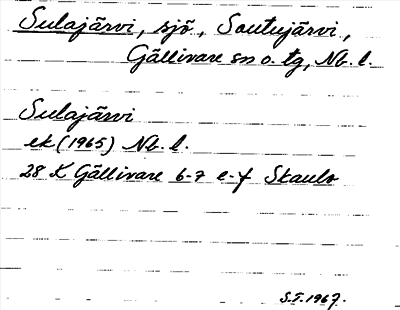 Sulajärvi, sjö, Soutujärvi,
Gällivare sn o. tg, Nb. l.
Sulajärvi
ek (1965) Nb. l.
28 K Gällivare 6-7 e-f Skaulo
S.F. 1967.